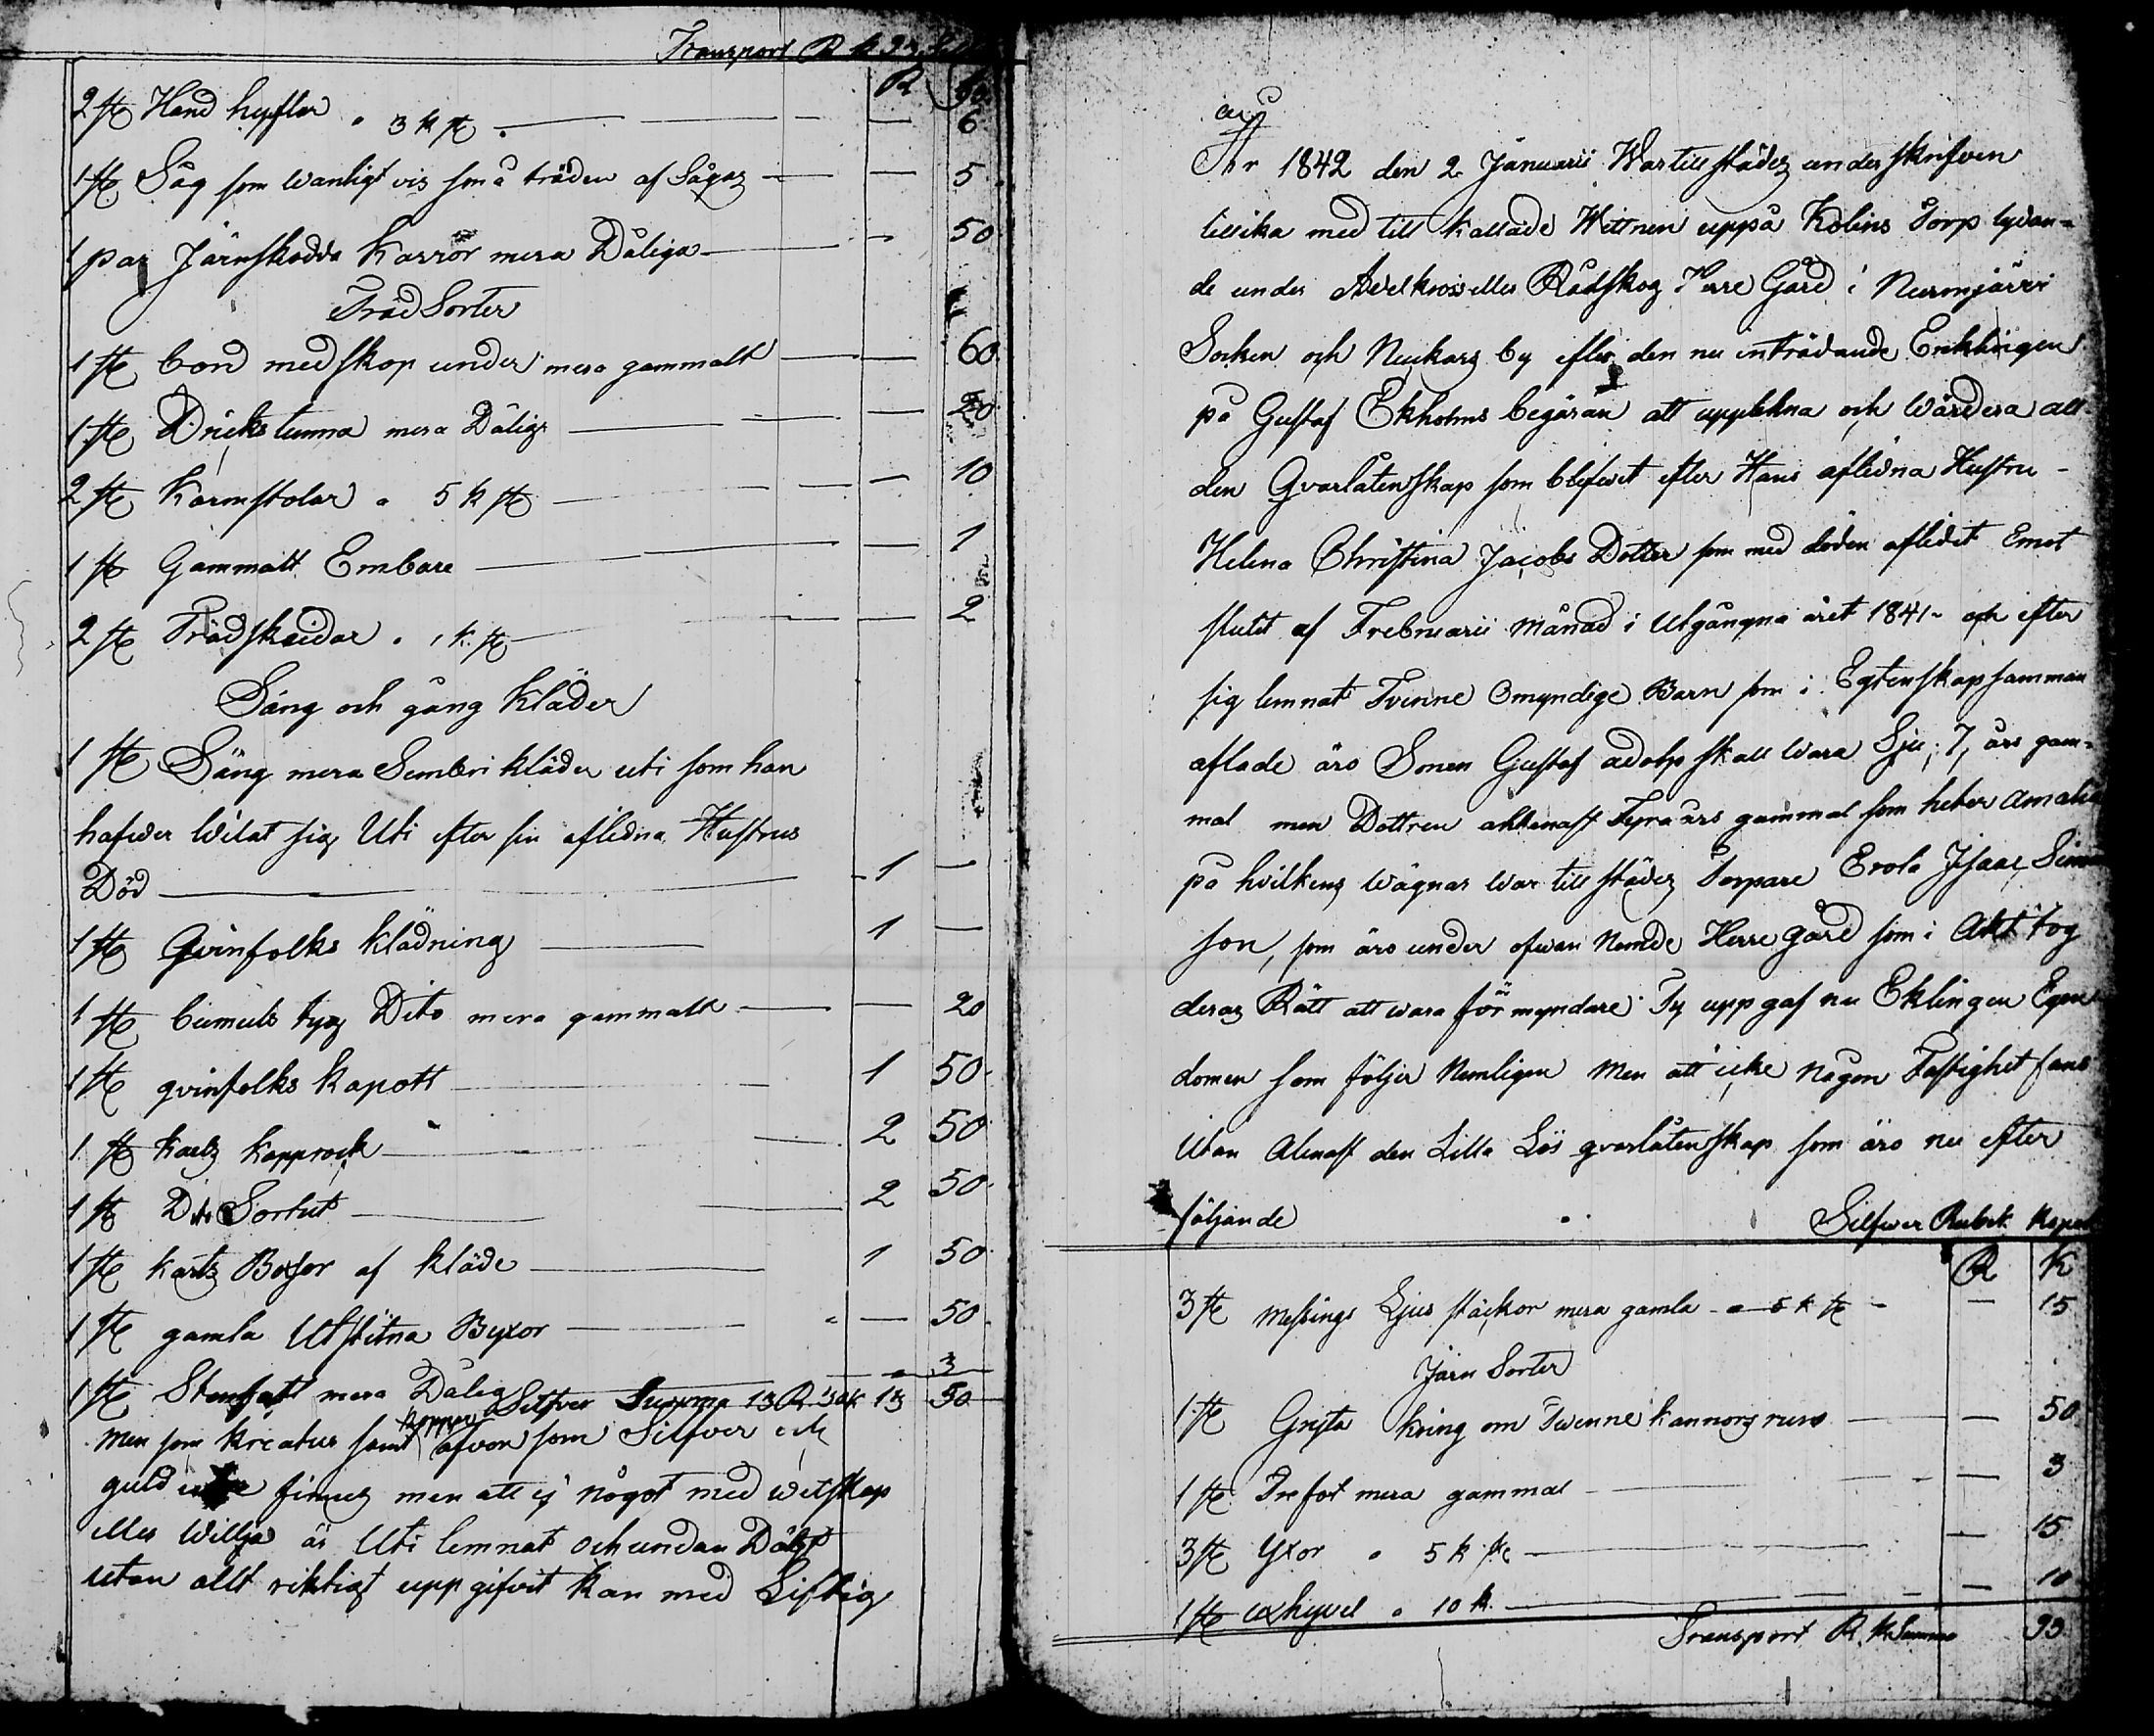 Transport R k 93
R
2 st Hand hyflar a 3 k st — — 6
1 st Såg som wanligt vis små träden af Sågas — — 5
1 par Järnskodda Karror mera Dåliga — — 50
Träd Sorter
1 st bord med skop under mera gammalt — — 60
1 st Drickstunna mera Dålig — — 20
2 st Karmstolar a 5 k st — — 10
1 st Gammalt Embare — — 1
2 st Trädskeidar a 1 k. st — — 2
Säng och gång Kläder
1 st Säng mera kläder uti som han
hafwer wilat sig Uti efter sin aflidna Hustrus
Död — 1 —
1 st Qvinfolks klädning — 1 —
1 st bumuls tyg Dito mera gammalt — — 20
1 st qvinfolks kapott — 1 50
1 st karlz kapprock — 2 50
1 st Dito Sortut — 2 50
1 st karlz Boxor af kläde — 1 50
1 st gamla Utslitna Byxor — — 50
1 st Stenfatt mera Dålig — — 3
Silfver Summa 13 R 50 k 13 50
men som kreatur samt koppar äfven som Silfver och
guld finnes men att ej något med wetskap
eller willja är Uti lemnat och undan Dölgt
utan allt riktigt uppgifvit kan med Liflig
År 1842 den 2 Januarii War tillstädes underskrifven
tillika med till kallade Wittnen uppå Kolins Torp lydan-
de under eller Rådskog Herre Gård i Nurmjärvi
Socken och Nuckars by efter den nu inträdande Enklingen
på Gustaf Ekholms begäran att uppteckna och wärdera all
den Qvarlåtenskap som blifwit efter Hans aflidna Hustru
Helena Christina Jacobs Dotter som med döden aflidit Emot
slutet af Frebruarii månad i Utgångna året 1841 och efter
sig lemnat Tvenne Omyndige Barn som i Egtenskap samman
aflade äro Sonen Gustaf adolp skall wara Sju, 7, års gam-
mal men Dottren allenast Fyra års gammal som heter Amalia
på hvilkens wägnar war tillstädes Torpare Erola Isaac
son, som äro under ofwan Nemde Herre gård som i Akt tog
deras Rätt att wara för myndare Ty uppgaf nu Eklingen Egen
domen som följer Nemligen Men att icke någon Fastighet fans
Utan Alenast den Lilla Lös qvarlåtenskap som äro nu efter
följande Silfwer Rubel Kopek
R K
3 st Messings Ljus stackor mera gamla a 5 k st — 15
Järn Sorter
1 st Gryta kring om Twenne kannors rum — — 50
1 st Trefot mera gammal — — 3
3 st Yxor a 5 k st — — 15
1 st a 10 k. — — 10
Transport R. k Summa 93